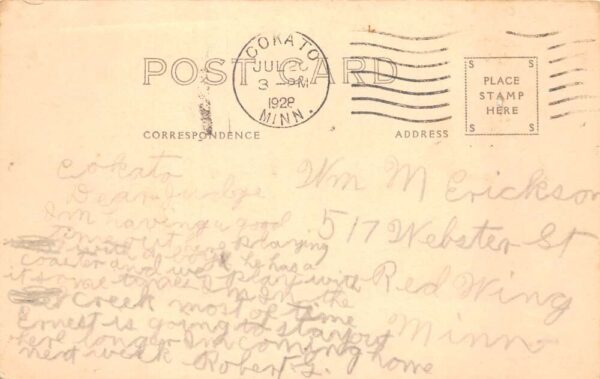 COKATO
JUL 26
3 PM
1928
MINN.
POST CARD
S S
PLACE
STAMP
HERE
S S
CORRESPONDENCE
ADDRESS
Cokato
Dear Judge
Im having a good
time out here playing
with a boy he has a
coaster and
it some times I play with
Creek most of time
Ernest is going to stay out
here longer Im coming home
next week Robert
Wm M Erickson
517 Webster St
Red Wing
Minn